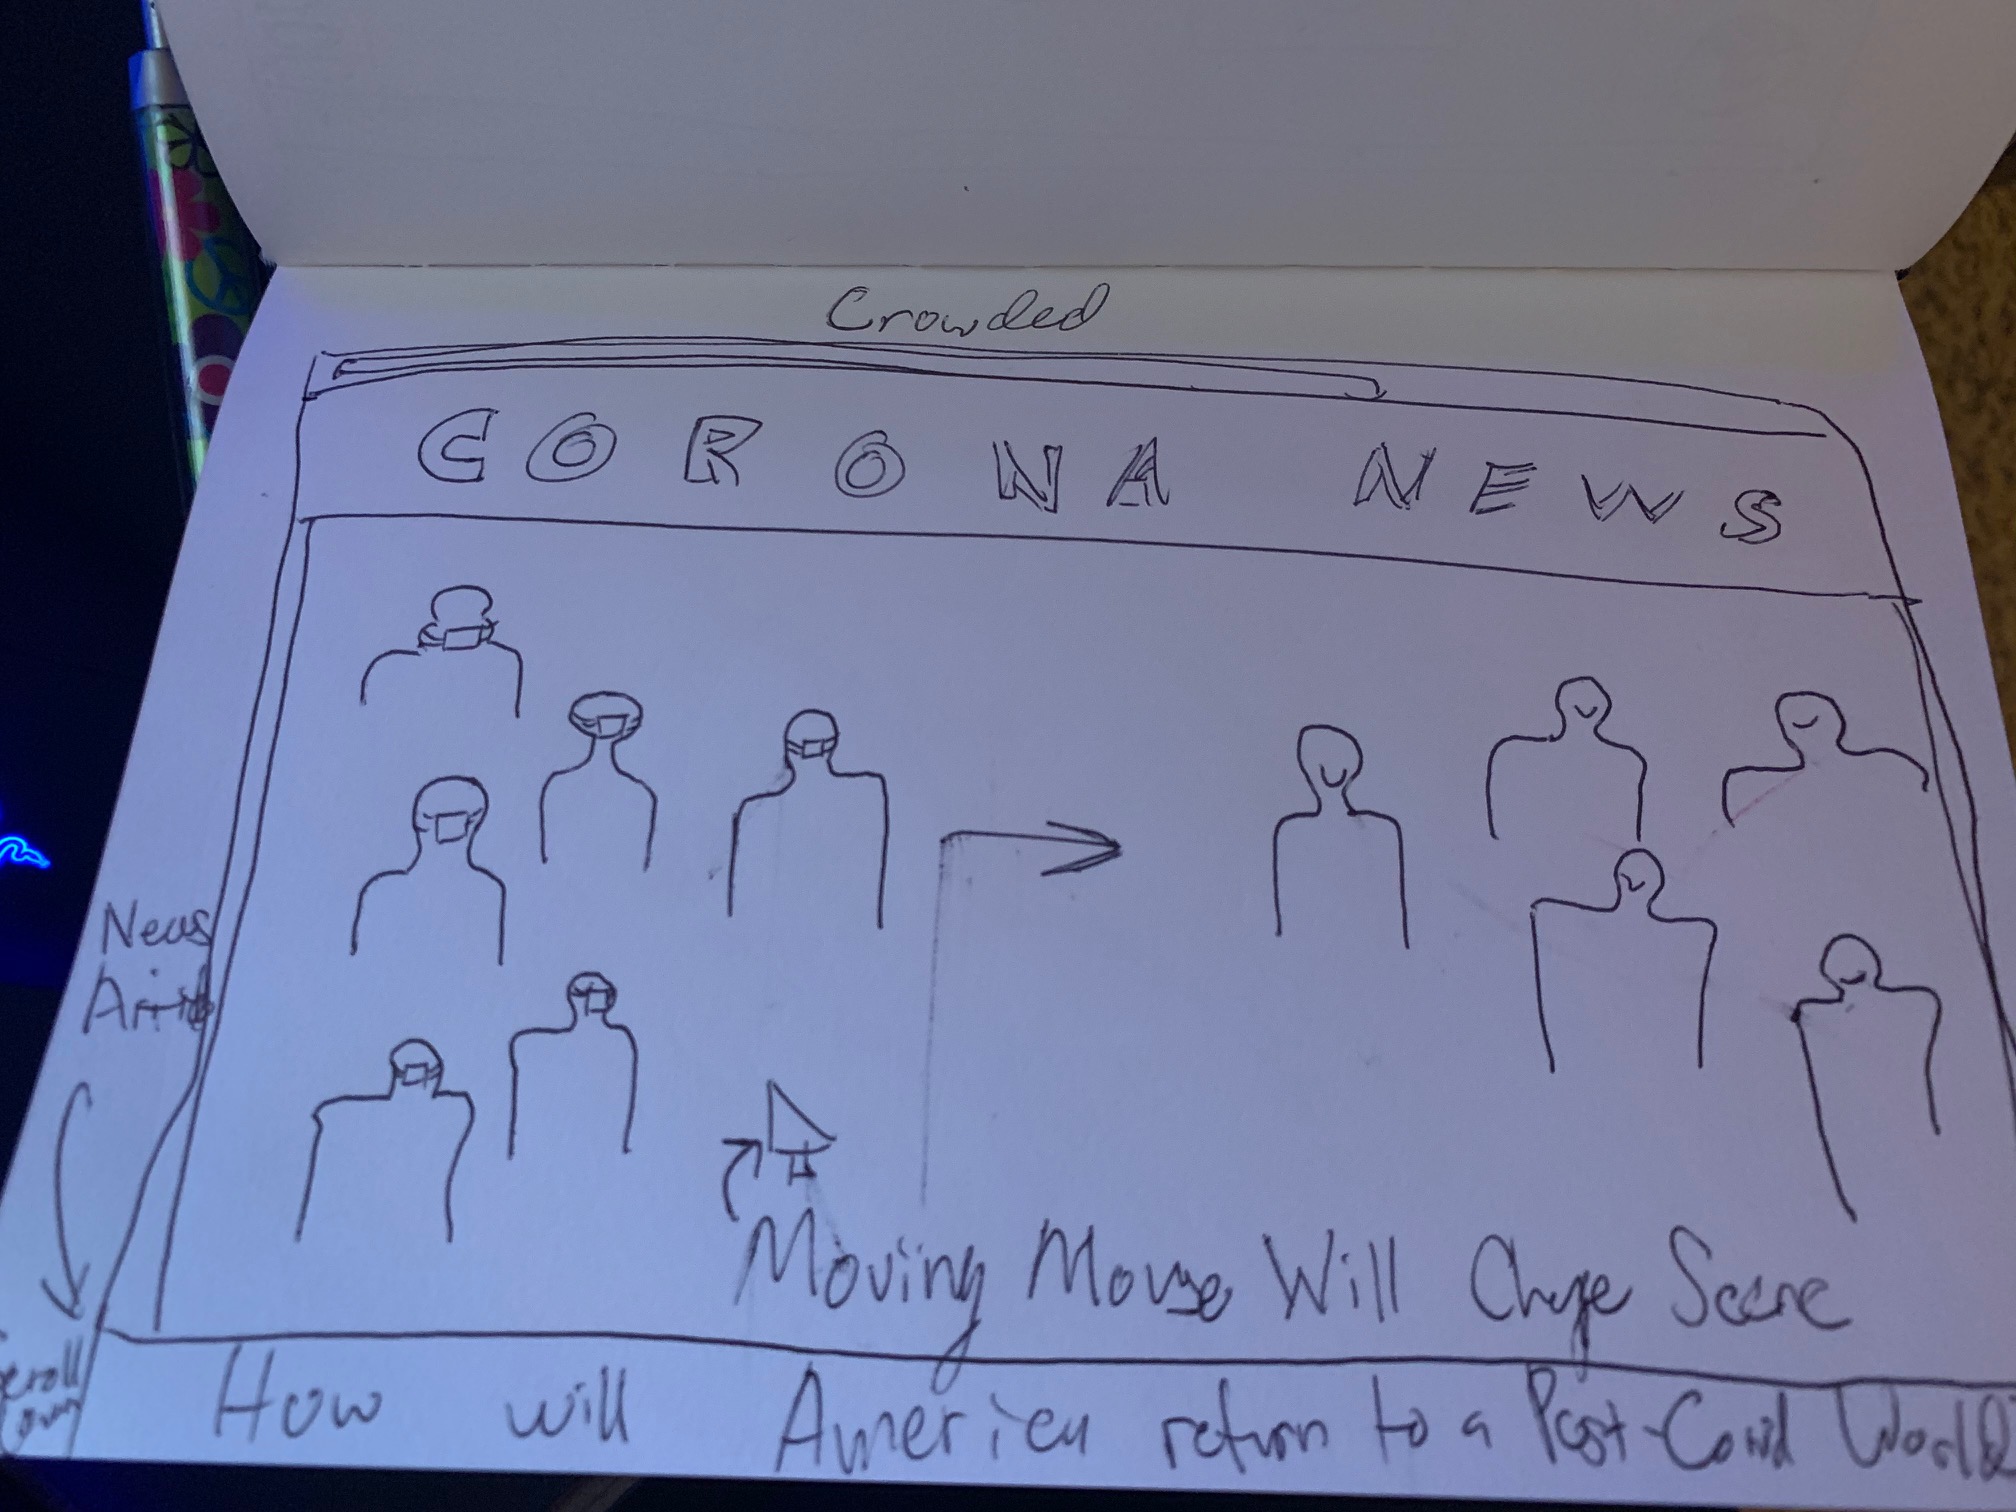 Crowded
CORONA NEWS
News
Moving Mouse Will Change Scene
How will America return to a Post-Covid World